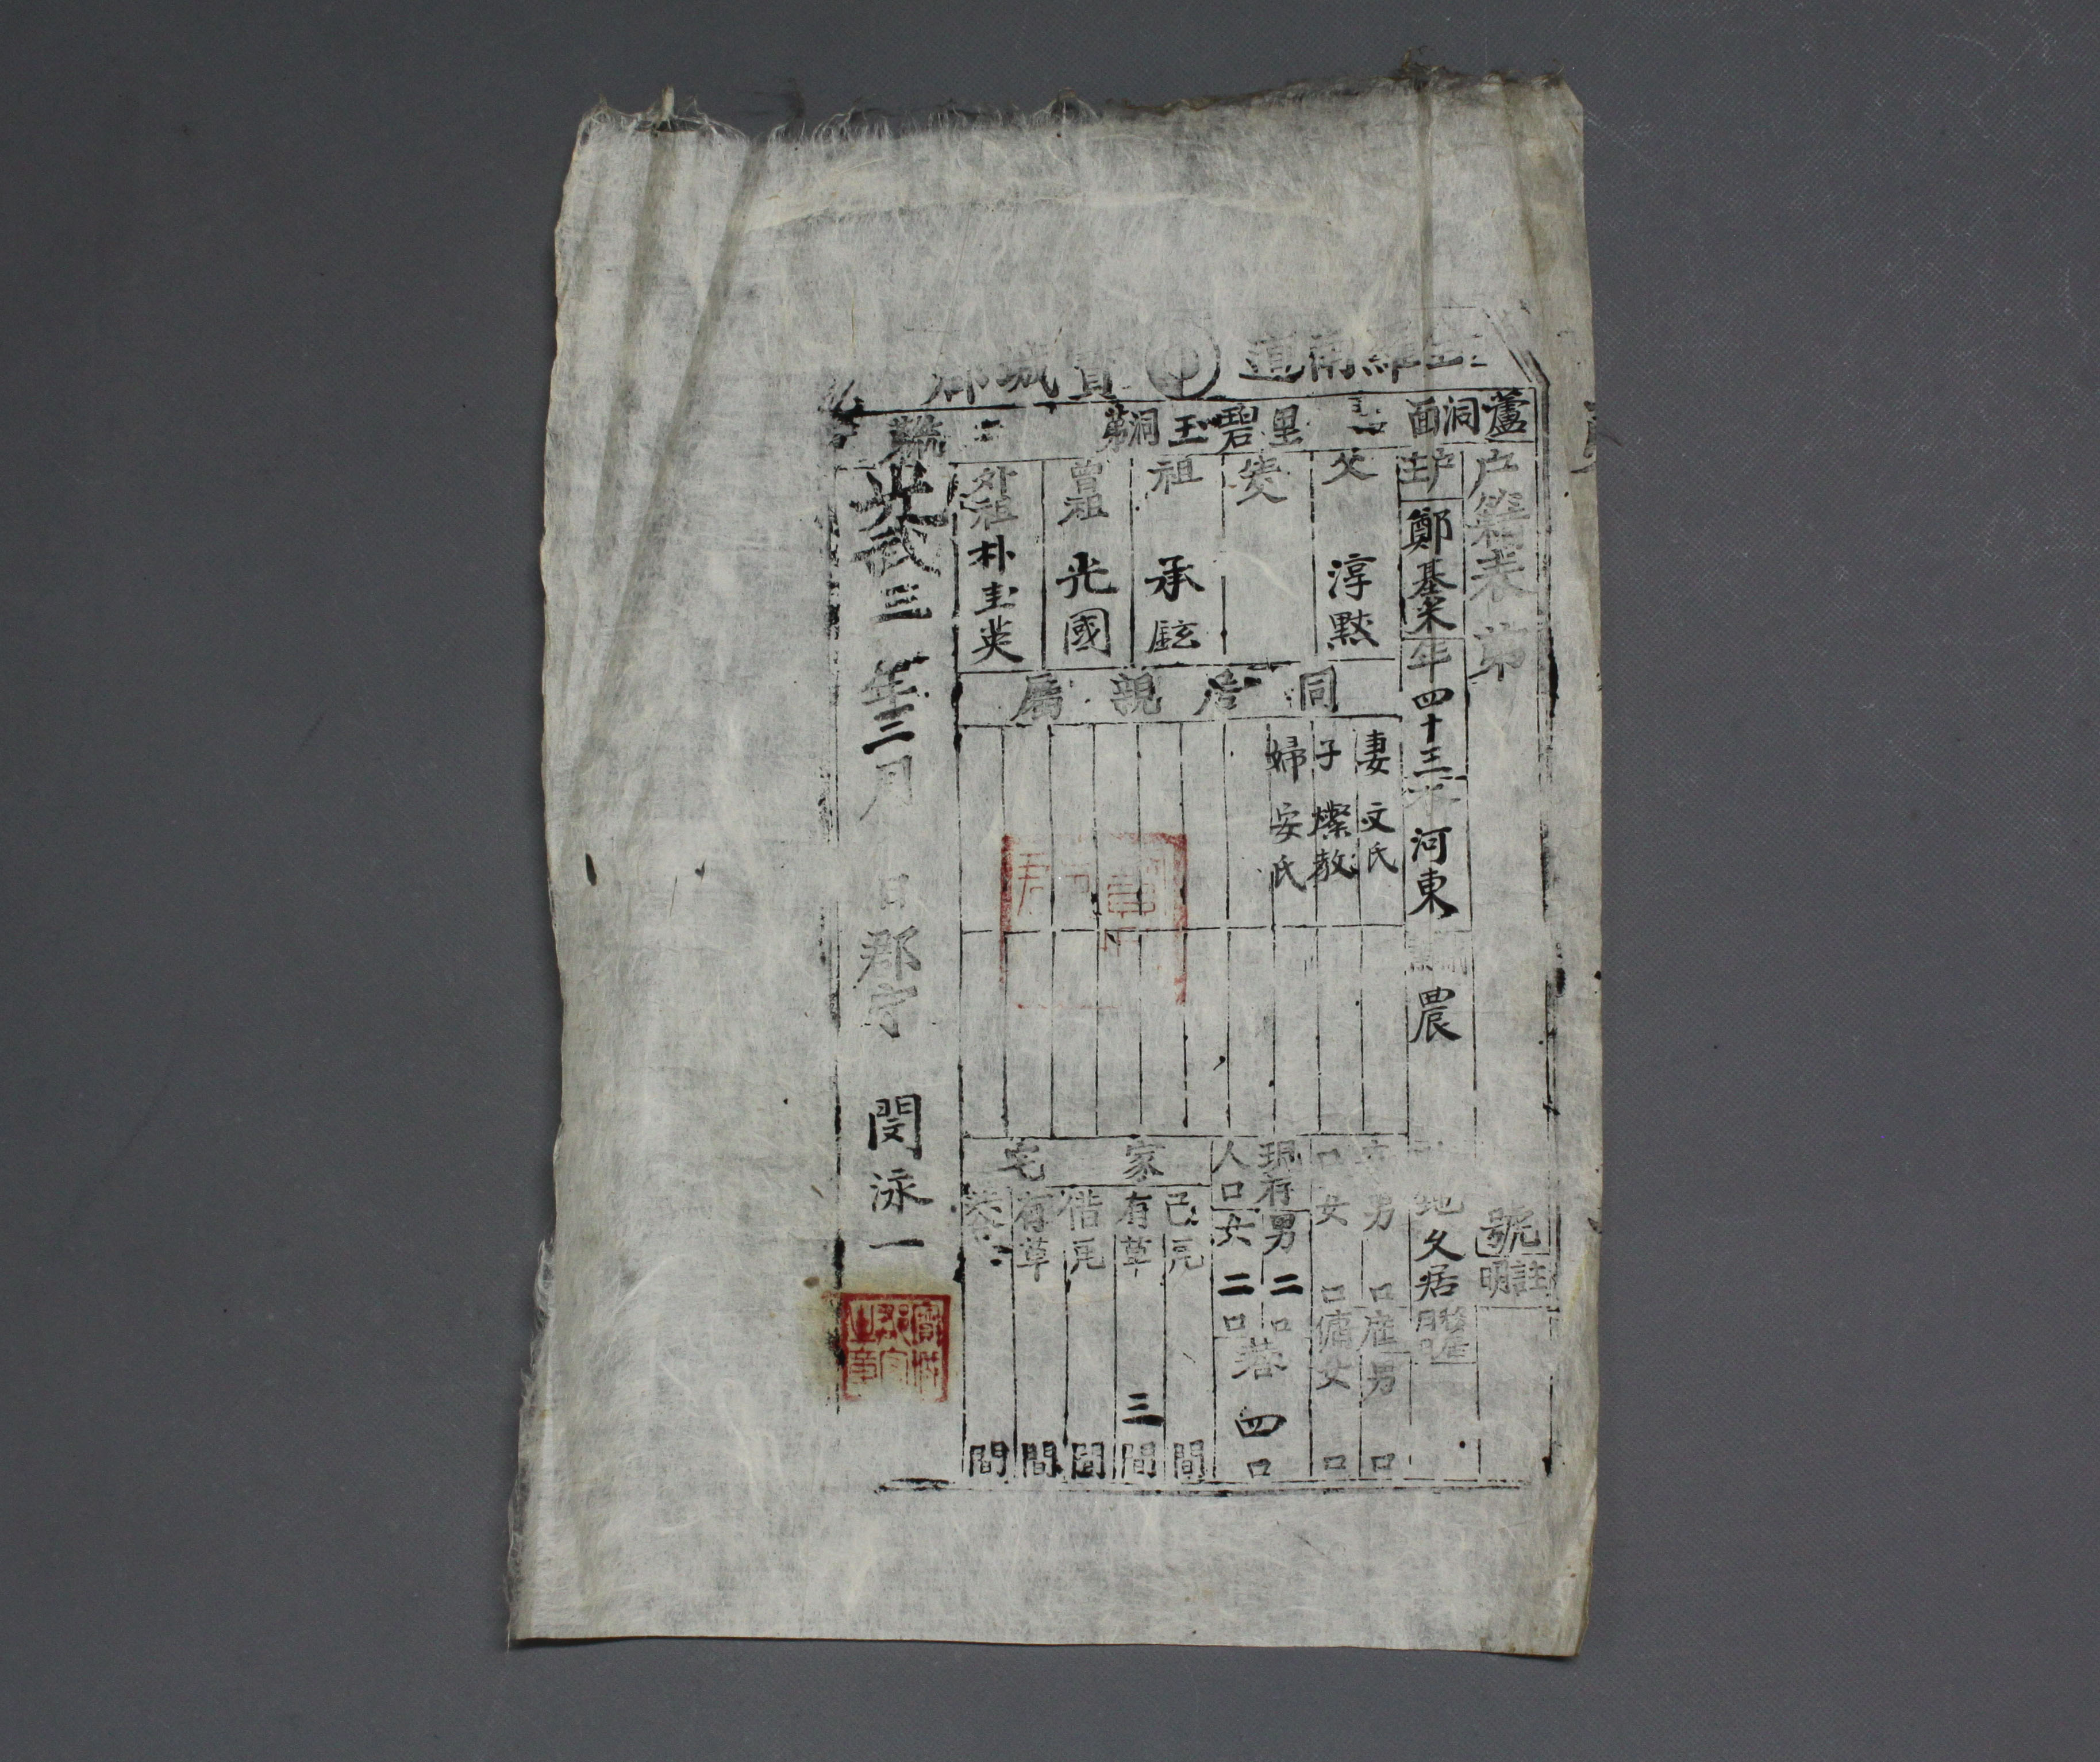 全羅南道 寶城郡
蘆洞面 里碧玉洞第 二 統 戶
戶籍表第 號
註明
戶主 鄭基采 年四十三 本 河東 農
地 久居
父 淳黙
祖 承鉉
曾祖 光國
外祖 朴圭英
同居親屬
妻 文氏
子 燦敎
婦 安氏
男 口 雇男 口
女 口 傭女 口
現存 男 二口
人口 女 二口
共 四口
家宅
己有 瓦 間
草 三間
借有 瓦 間
草 間
共 間
光武三年三月 日郡守 閔泳一
寶城郡守之章